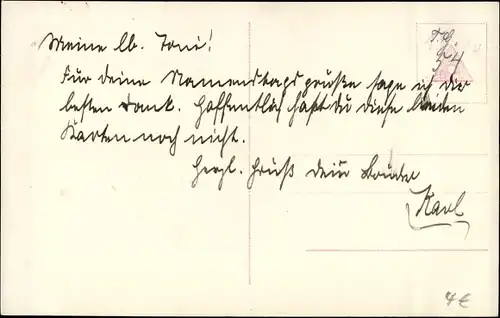 Meine lb. Toni!
Für deine Namenstagsgrüße sage ich dir
besten Dank. Hoffentlich hast du diese beiden
Karten noch nicht.
Herzl. Gruß dein Bruder
Karl
4€